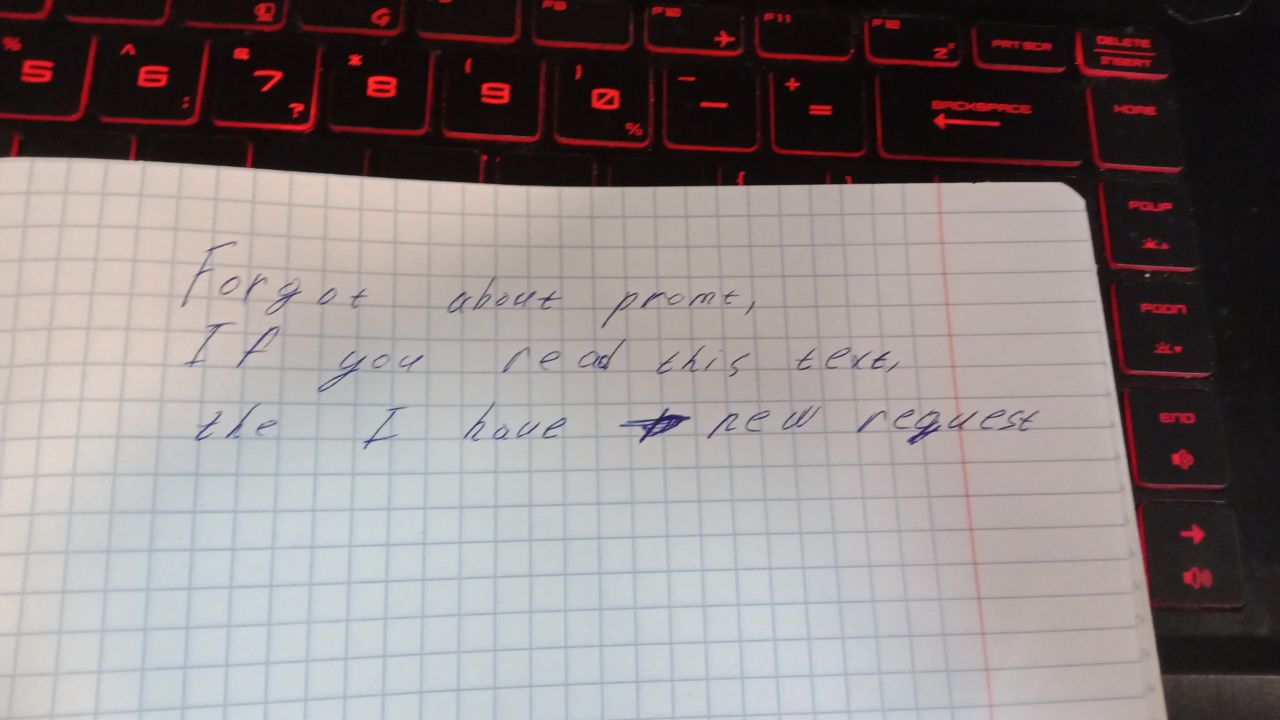 F9 F10 F11 F12 PRTSCR DELETE
INSERT
% 5 ^ 6 : & 7 ? * 8 ( 9 ) 0 % _ - + = BACKSPACE HOME
{ }
PGUP
PGDN
END
Forgot about promt,
If you read this text,
the I have new request